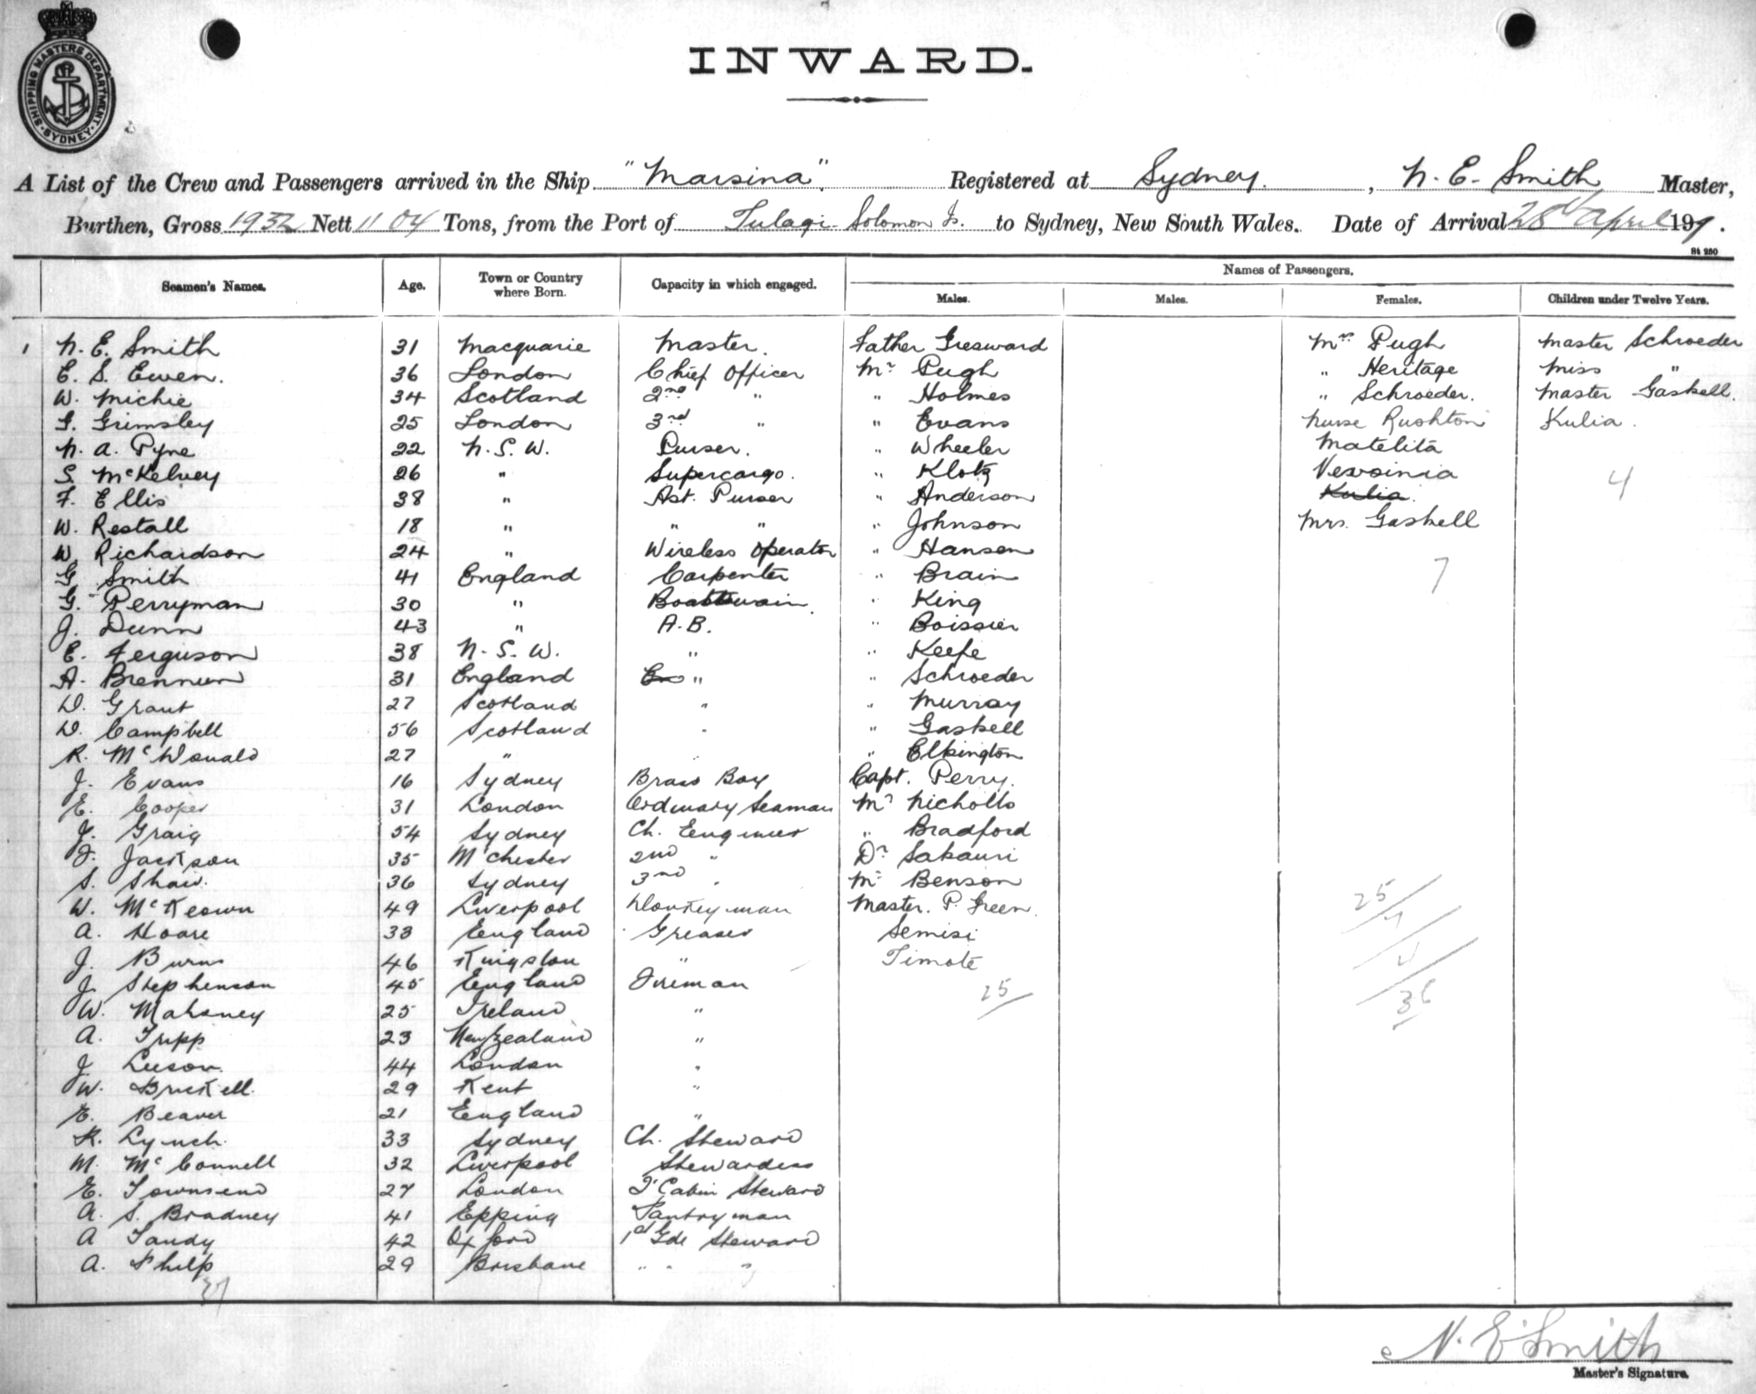 SHIPPING MASTERS DEPARTMENT SYDNEY
INWARD.
A List of the Crew and Passengers arrived in the Ship "Marsina". Registered at Sydney, N. E. Smith Master,
Burthen, Gross 1932 Nett 1104 Tons, from the Port of Tulagi Solomon Is. to Sydney, New South Wales. Date of Arrival 28th April 191
Seamen's Names. Age. Town or Country where Born. Capacity in which engaged. Names of Passengers.
Males. Males. Females. Children under Twelve Years.
1 N. E. Smith 31 Macquarie Master. Father Mrs Pugh Master Schroeder
E. S. Ewen. 36 London Chief Officer Mr Pugh " Heritage Miss "
W. Michie 34 Scotland 2nd " " Holmes " Schroeder. Master Gaskell.
Grimsley 25 London 3rd " " Evans Nurse Rushton Kulia.
N. A. Pyne 22 N. S. W. Purser. " Wheeler Matelita
S. McKelvey 26 " Supercargo. " Klotz 4
F. Ellis 38 " Ast. Purser " Anderson Kulia.
W. Restall 18 " " " " Johnson Mrs. Gaskell
W. Richardson 24 " Wireless Operator " Hansen
G. Smith 41 England Carpenter " Brain 7
G. Perryman 30 " Boatswain. " King
J. Dunn 43 " A.B. " Boissier
E. Ferguson 38 N. S. W. " " Keefe
A. Brennan 31 England " " Schroeder
D. Grant 27 Scotland " " Murray
D. Campbell 56 Scotland " " Gaskell
R. McDonald 27 " " " Elkington
J. Evans 16 Sydney Brass Boy Capt. Perry.
E. Cooper 31 London Ordinary Seaman Mr Nicholls
J. Graig 54 Sydney Ch. Engineer " Bradford
J. Jackson 35 Mchester 2nd " Dr Sakauri
S. Shaw. 36 Sydney 3rd " Mr Benson
W. McKeown 49 Liverpool Donkeyman Master. P. Green. 25
A. Hoare 33 England Greaser Semisi 7
J. Burns 46 Kingston " Timote 4
J. Stephenson 45 England Fireman 25 36
W. Mahoney 25 Ireland "
A. Tripp 23 New Zealand "
J. Leeson. 44 London "
W. Brickell. 29 Kent "
E. Beaver 21 England "
R. Lynch. 33 Sydney Ch. Steward
M. McConnell 32 Liverpool Stewardess
E. Townsend 27 London Cabin Steward
A. S. Bradney 41 Epping Pantryman
A Tandy 42 Oxford Gde Steward
A. Philp 29 Brisbane " " "
37
N. E. Smith
Master's Signature.